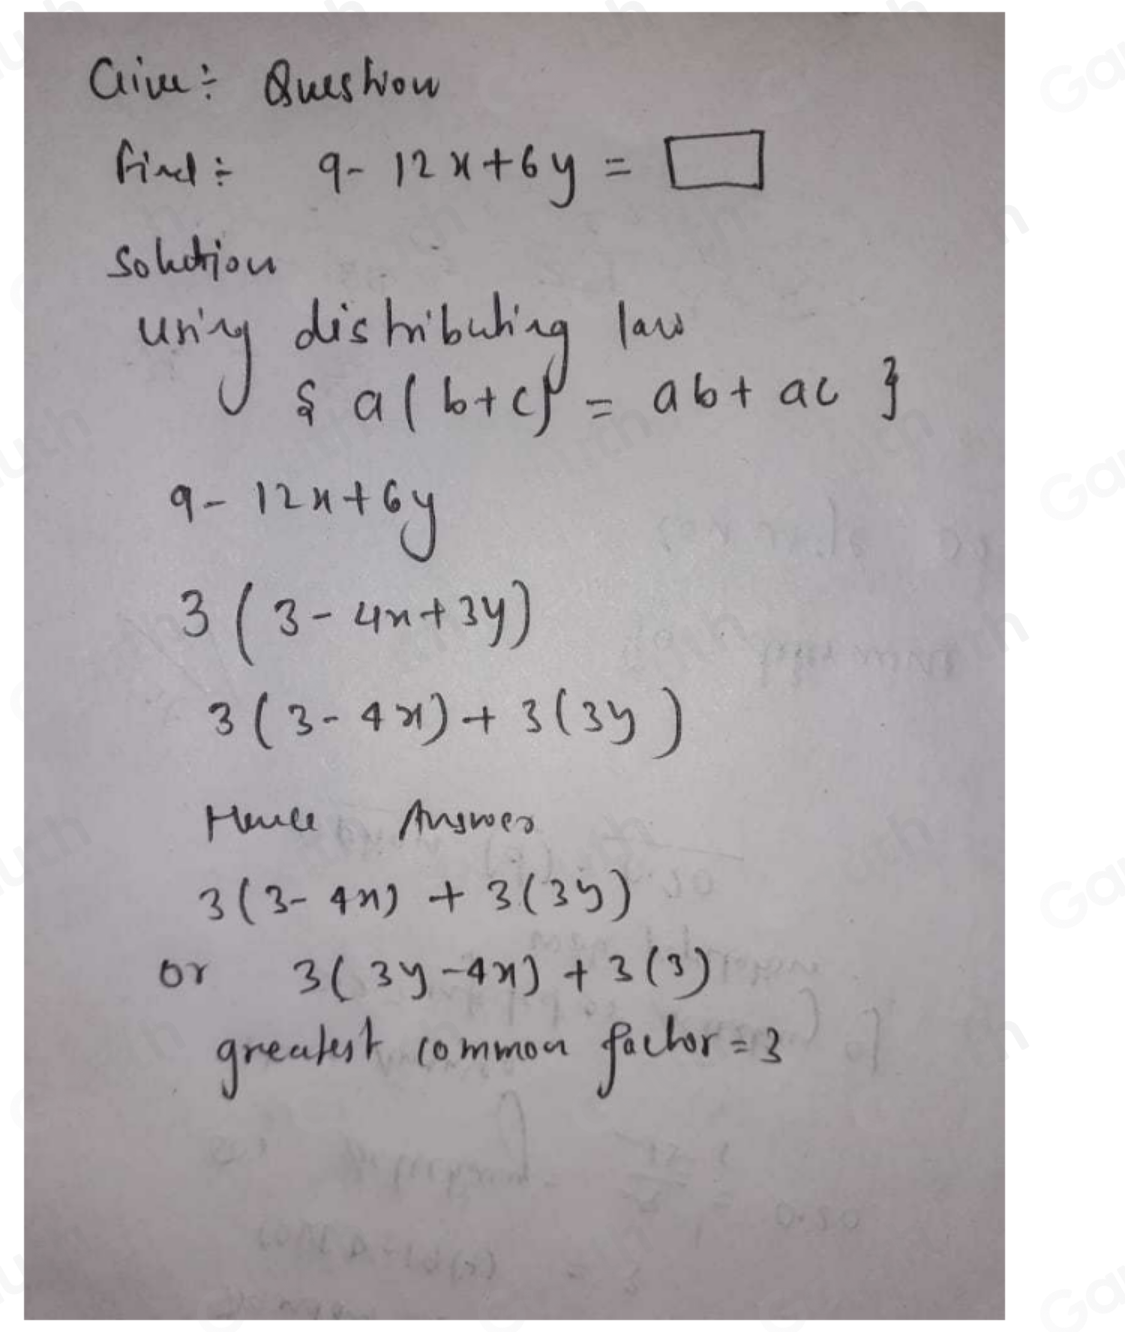 Give ÷ Question
find ÷ 9 - 12x + 6y = 
Solution
using distributing law
{ a ( b + c ) = ab + ac }
9 - 12x + 6y
3 ( 3 - 4x + 3y )
3 ( 3 - 4x ) + 3 ( 3y )
Hence Answer
3 ( 3 - 4x ) + 3 ( 3y )
or 3 ( 3y - 4x ) + 3 ( 3 )
greatest common factor = 3